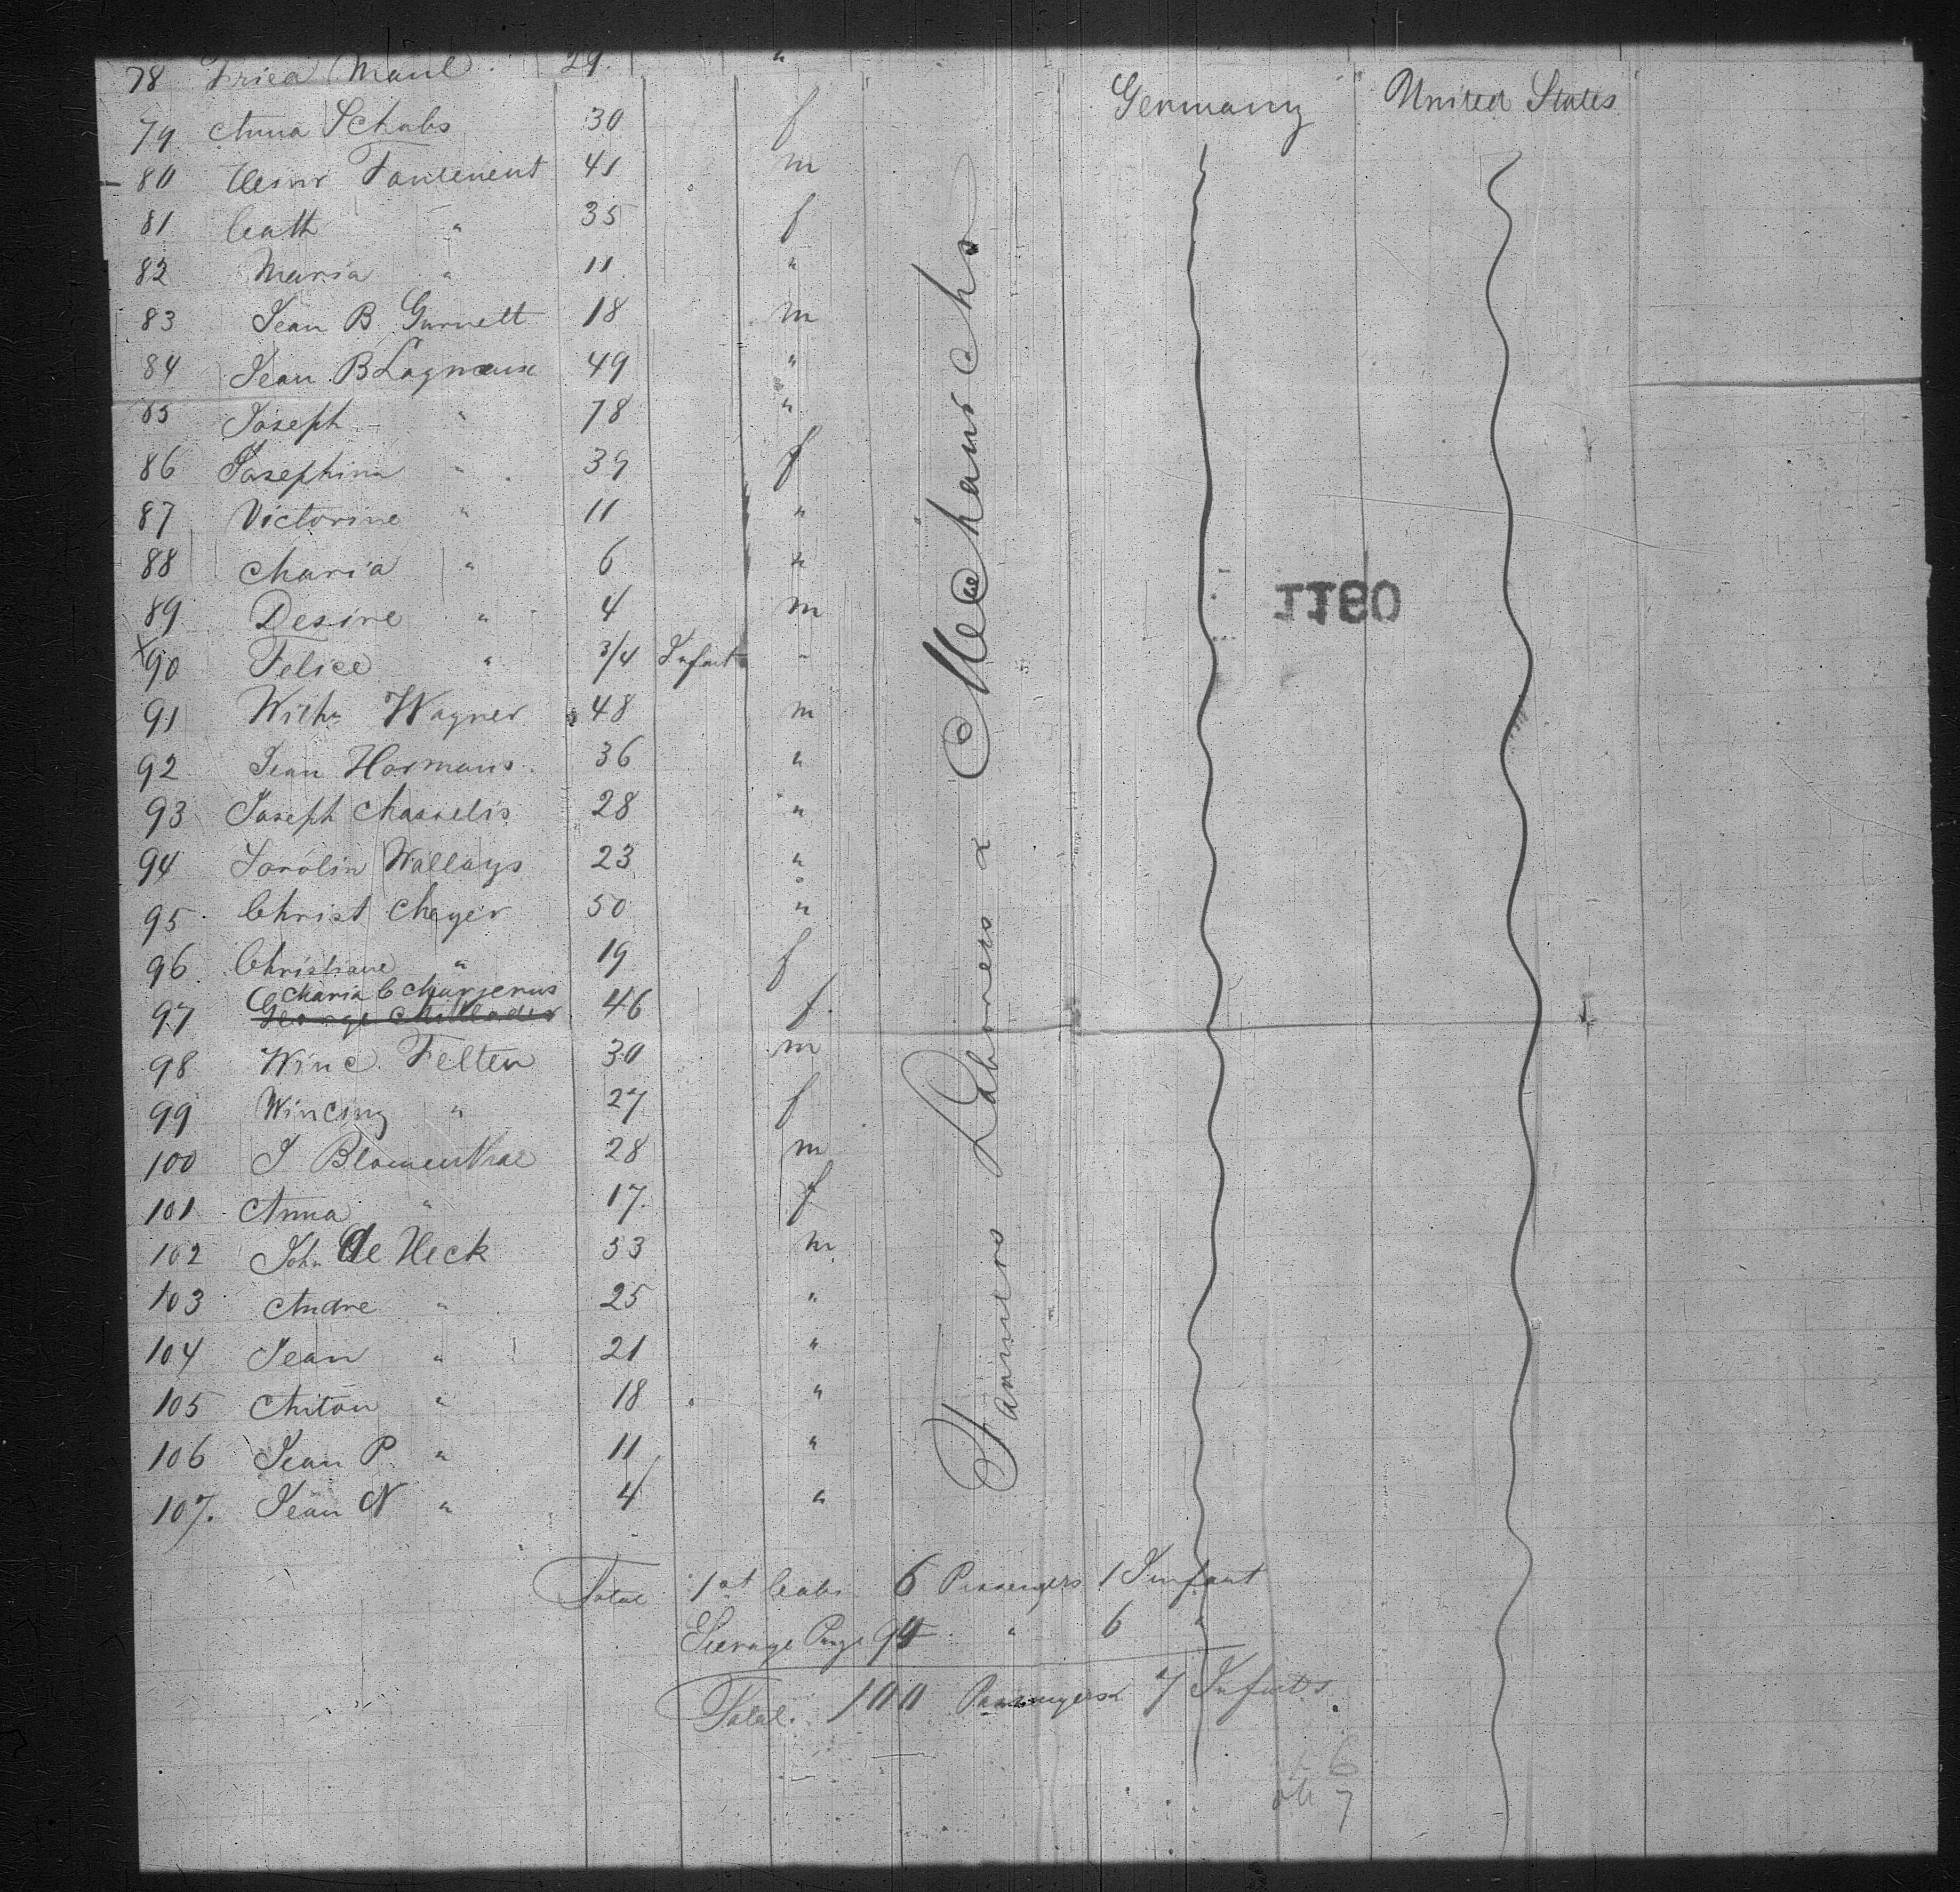 78 Fried Maul 29 "
Germany United States
79 Anna Schabs 30 f
80 Heinr Fontenient 41 m
81 Cath " 35 f
82 Maria " 11 "
83 Jean B Gurnett 18 m
84 Jean B Lagneaux 49 "
85 Joseph " 78 "
86 Josephina " 39 f
87 Victorine " 11 "
88 Maria " 6 "
89 Desire " 4 m
x90 Felice " 3/4 Infant -
91 Wilhm Wagner 48 m
92 Jean Hormans 36 "
93 Joseph Masselis 28 "
94 Carolin Wallays 23 "
95 Christ Meyer 50 "
96 Christiane " 19 f
Maria C
97 George 46 f
98 Winc. Felten 30 m
99 Wincing " 27 f
100 J Blomenthal 28 m
101 Anna " 17. f
102 John de Heck 53 m
103 Andre " 25 "
104 Jean " 21 "
105 Anton " 18 "
106 Jean P. " 11 "
107. Jean N " 4 "
Farmers Laborers & Mechanichs
1180
Total 1st Cabi 6 Passengers 1 Infant
Steerage Pasg. 94 " 6 "
Total. 100 Passengers 7 Infants.
6
7